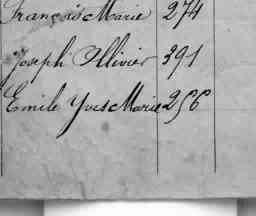 François Marie 274
Joseph Ollivier 391
Emile Yves Marie 256